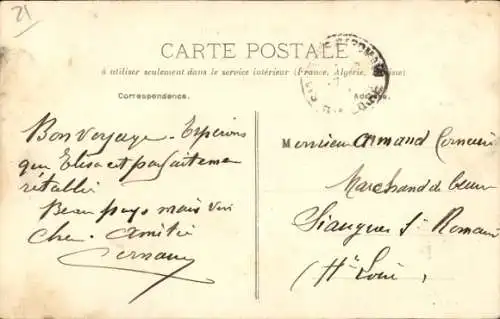 21
CARTE POSTALE
à utiliser seulement dans le service intérieur (France, Algérie,
Correspondance.
Adresse
Bon Voyage. Espérons
que Elisa est parfaitement
rétablie
Beau pays mais
cher. Amitié
Monsieur Armand
Marchand de
Siaugues St Romain
(Hte Loire)